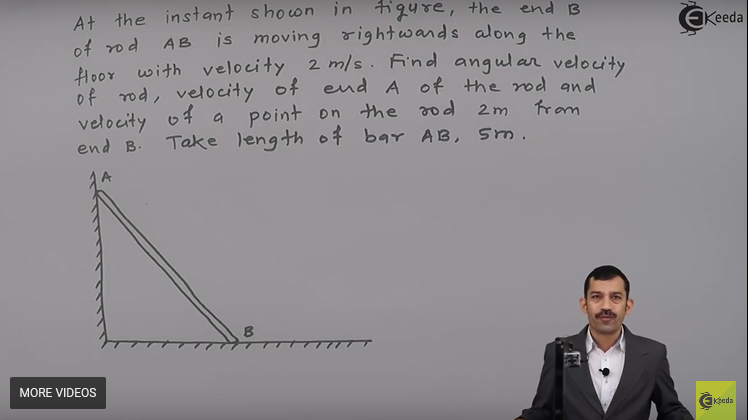 At the instant shown in figure, the end B
of rod AB is moving rightwards along the
floor with velocity 2 m/s. Find angular velocity
of rod, velocity of end A of the rod and
velocity of a point on the rod 2m from
end B. Take length of bar AB, 5m.
Ekeeda
A
B
MORE VIDEOS
Ekeeda